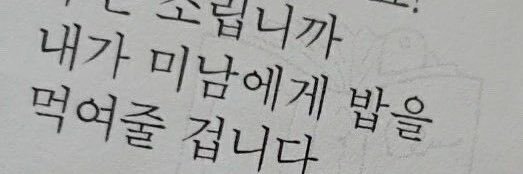 소립니까
내가 미남에게 밥을
먹여줄 겁니다